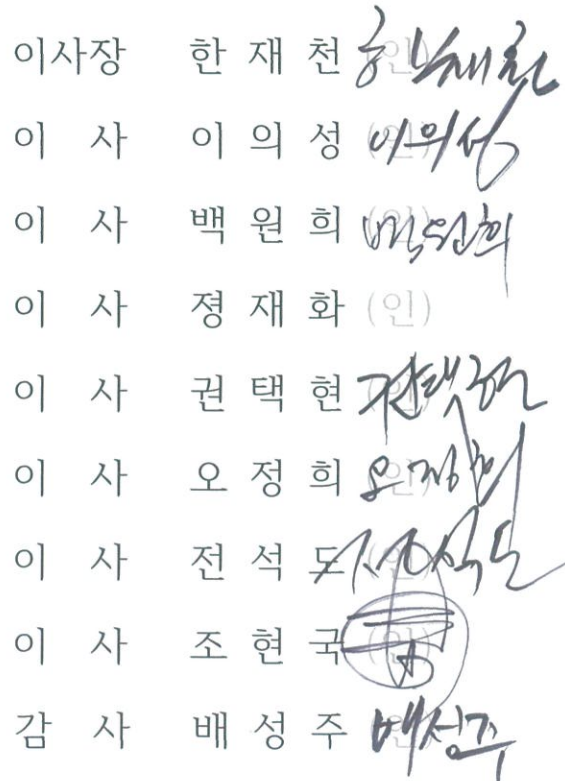 이사장 한 재 천 (인) 한재천
이 사 이 의 성 (인) 이의성
이 사 백 원 희 (인) 백원희
이 사 졍 재 화 (인)
이 사 권 택 현 (인) 권택현
이 사 오 정 희 (인) 오정희
이 사 전 석 도 (인) 전석도
이 사 조 현 국 (인)
감 사 배 성 주 (인) 배성주